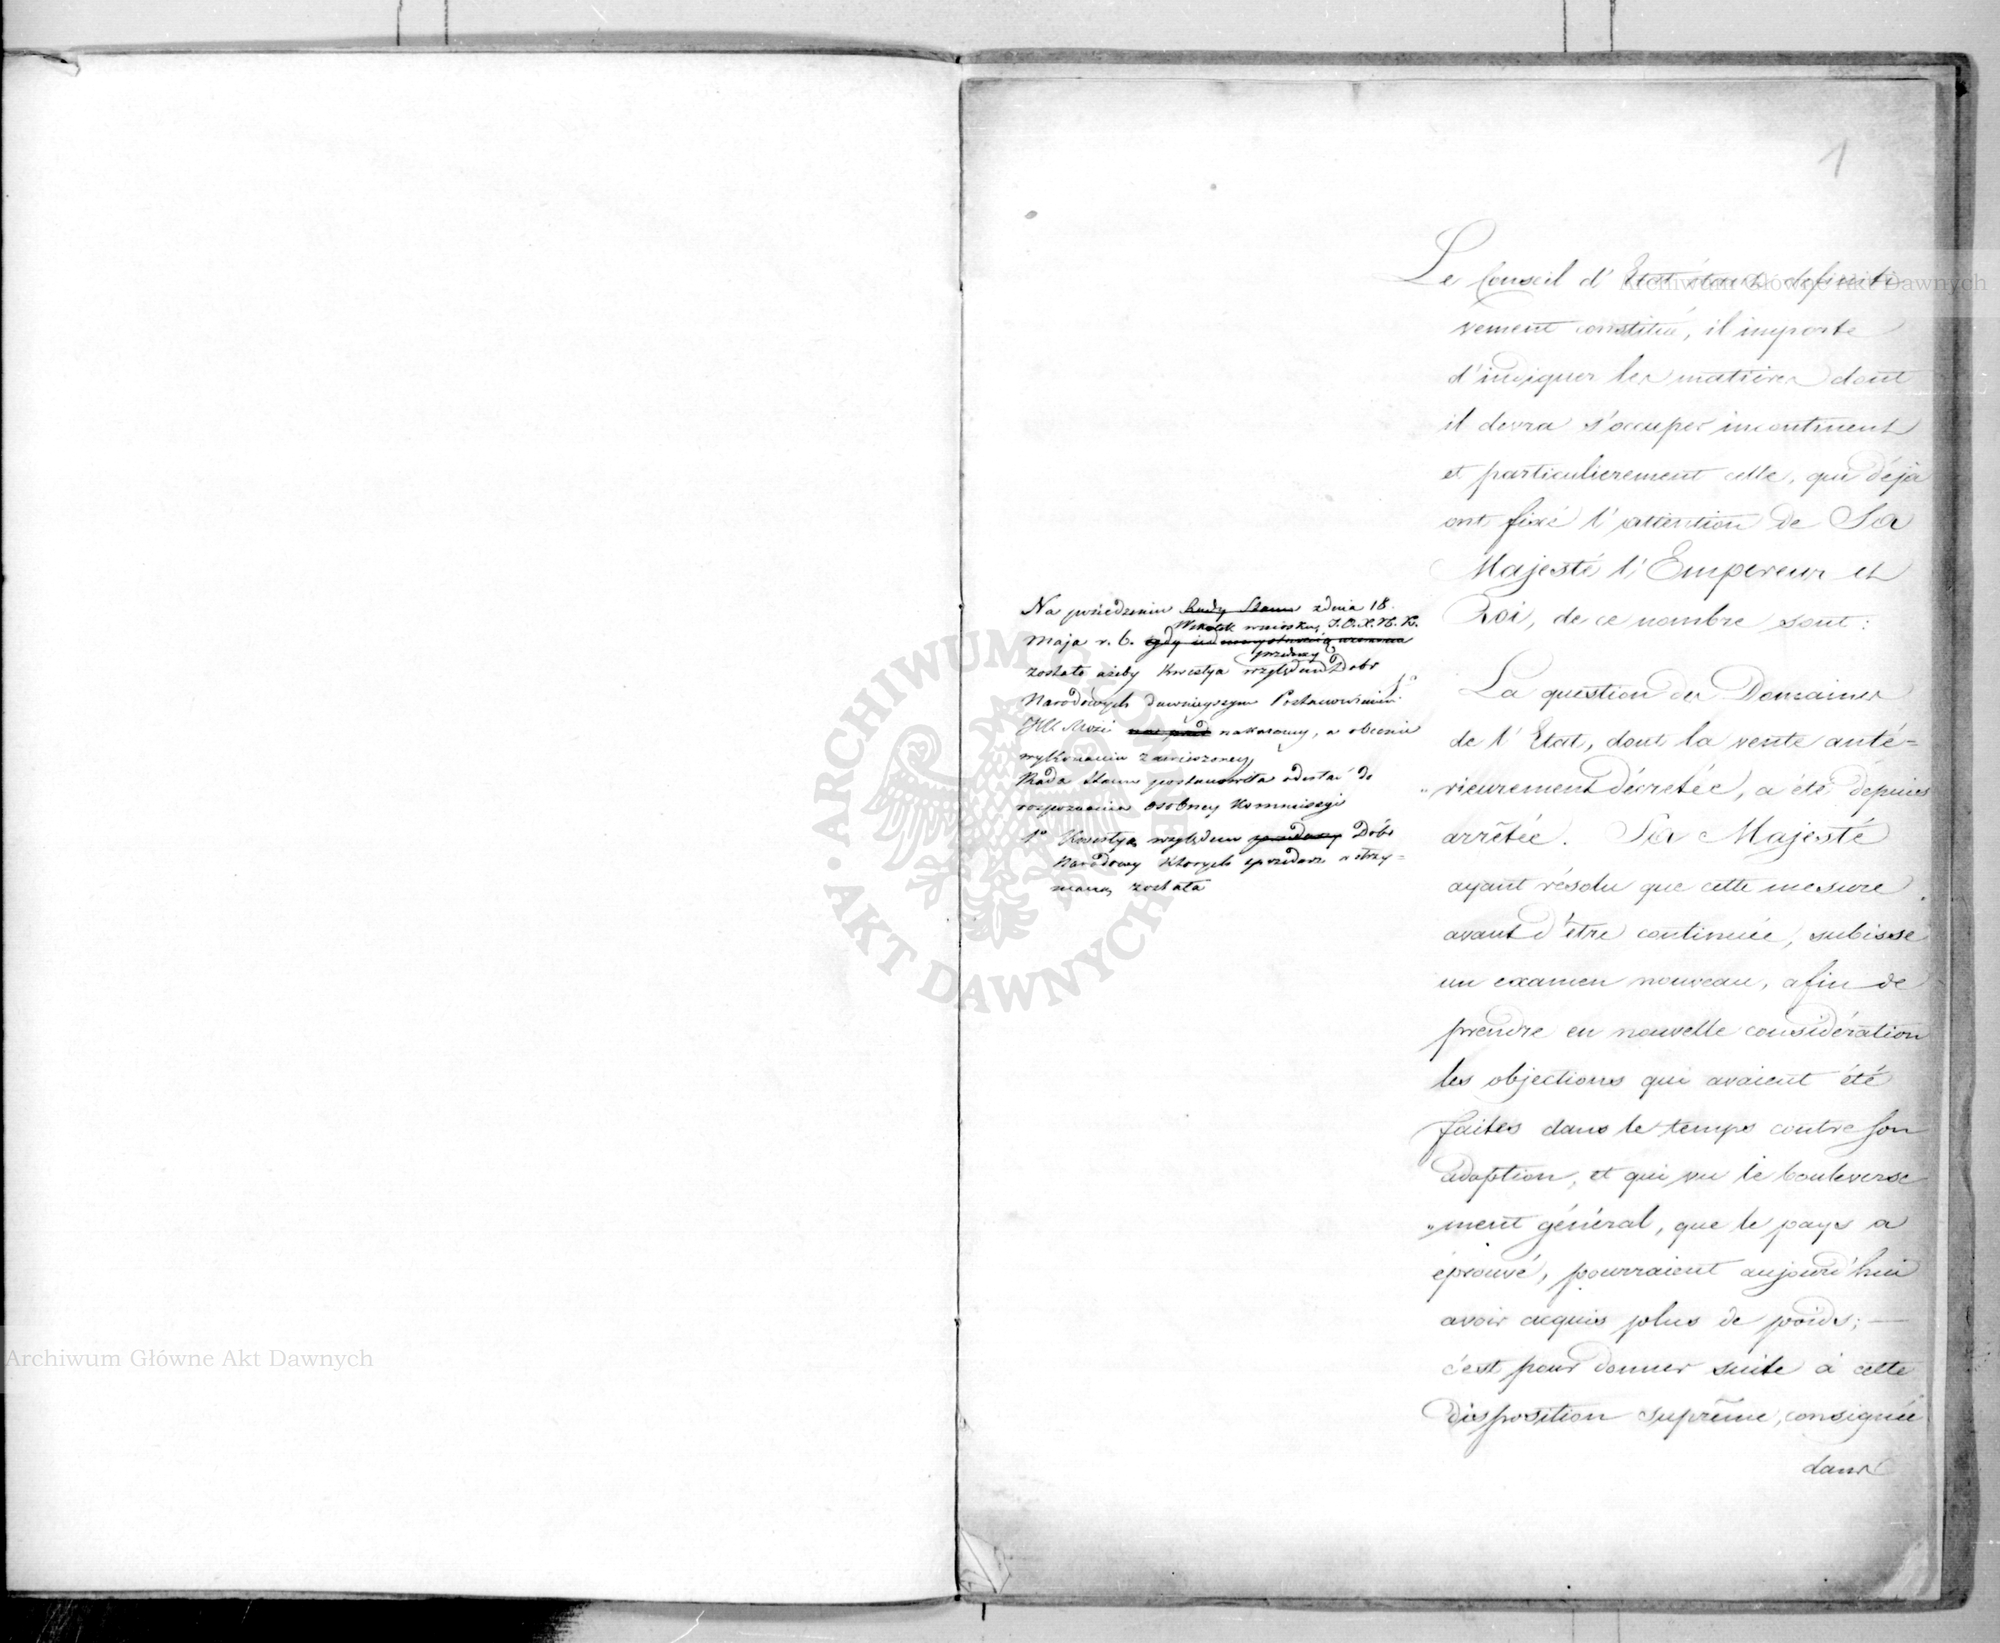 1
Le Conseil d'Etat étant definiti
vement constitué, il importe
d'indiquer les matières dont
il devra s'occuper incontinent
et particulierement celle, qui déja
ont fixé l'attention de Sa
Majesté l'Empereur et
Roi, de ce nombre sont:
1°
La question des Domaines
de l'Etat, dont la vente anté=
"rieurement décretée, a été depuis
arrêtée. Sa Majesté
ayant résolu que cette mesure
avant d'être continuée, subisse
un examen nouveau, afin de
prendre en nouvelle considération
les objections qui avaient été
faites dans le temps contre son
adoption, et qui vu le bouleverse
"ment général, que le pays a
éprouvé, pourraient aujourd'hui
avoir acquis plus de poids; —
c'est pour donner suite à cette
disposition suprême, consignée
dans
Na posiedzeniu Rady Stanu z dnia 18.
Wskutek wniosku, J.O.X.N.K.
Maja r. b. gdy
sprzedaży
zostało ażeby kwestya względem Dobr
Narodowych dawnieyszym Postanowieniem
nakazaney, a obecnie
wykonaniu zawieszoney
Rada Stanu postanowiła odesłać do
rozpoznania osobney Kommissyi
1° Kwestya względem sprzedaży Dóbr
Narodowy których sprzedarz wstrzy=
maną została
Archiwum Główne Akt Dawnych
Archiwum Główne Akt Dawnych
ARCHIWUM GŁÓWNE
AKT DAWNYCH